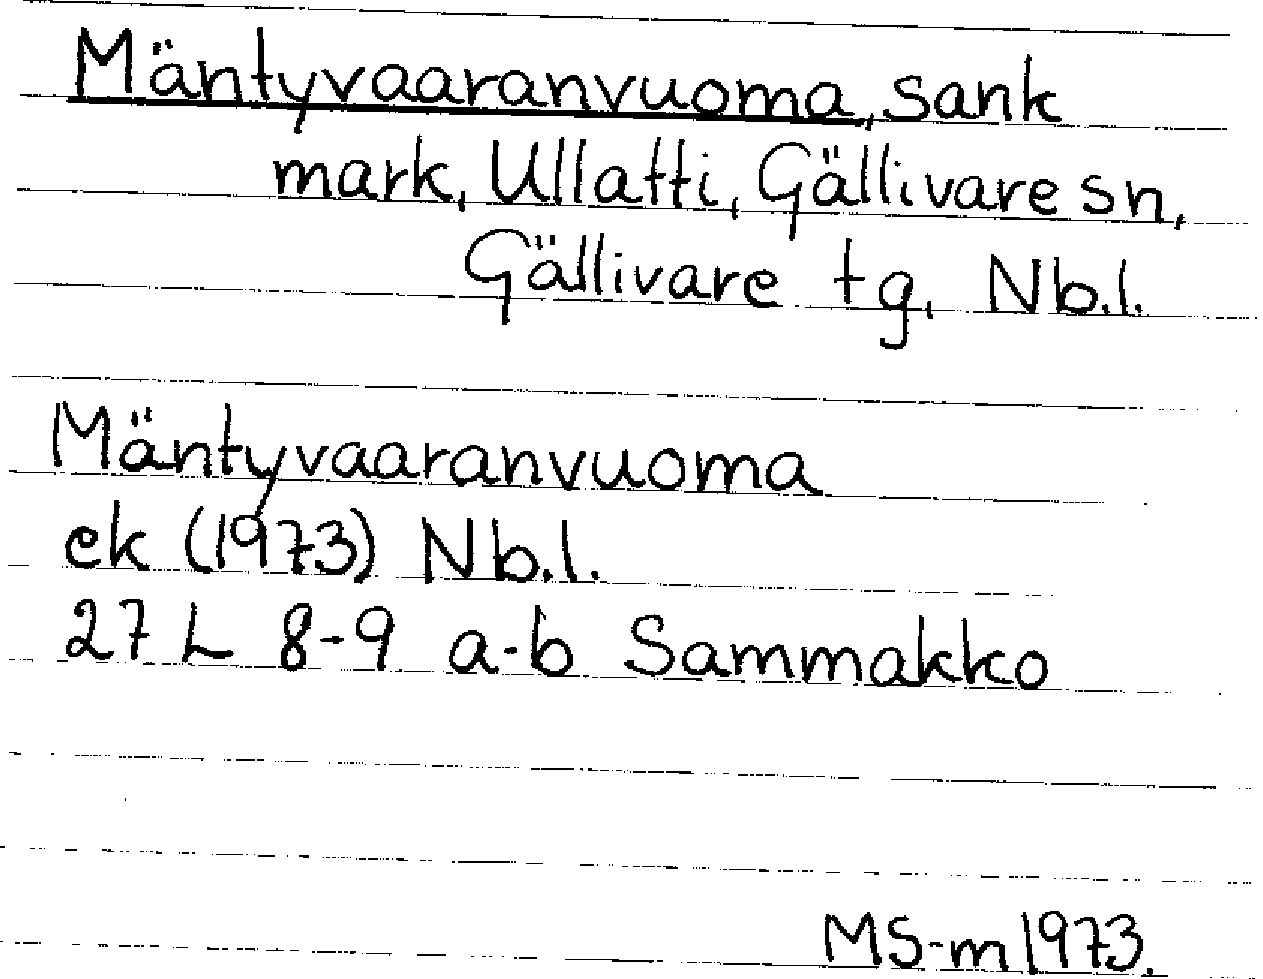 Mäntyvaaranvuoma, sank
mark, Ullatti, Gällivare sn,
Gällivare tg, Nb.l.
Mäntyvaaranvuoma
ek (1973) Nb.l.
27 L 8-9 a-b Sammakko
MS-m 1973.